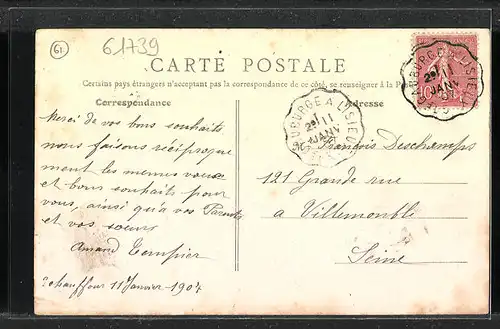 61
61739
CARTE POSTALE
Certains pays étrangers n'acceptant pas la correspondance de ce côté, se renseigner à la Poste
Correspondance
Adresse
Merci de vos bons souhaits
nous faisons réciproque
ment les mêmes vœux
et bons souhaits pour
vous, ainsi qu'à vos Parents
et vos sœurs
Amand Tempier
Echauffour 11 Janvier 1907
François Deschamps
121 Grande rue
a Villemomble
Seine
SURBOURG A LISIEUX
2° 11
JANV
10